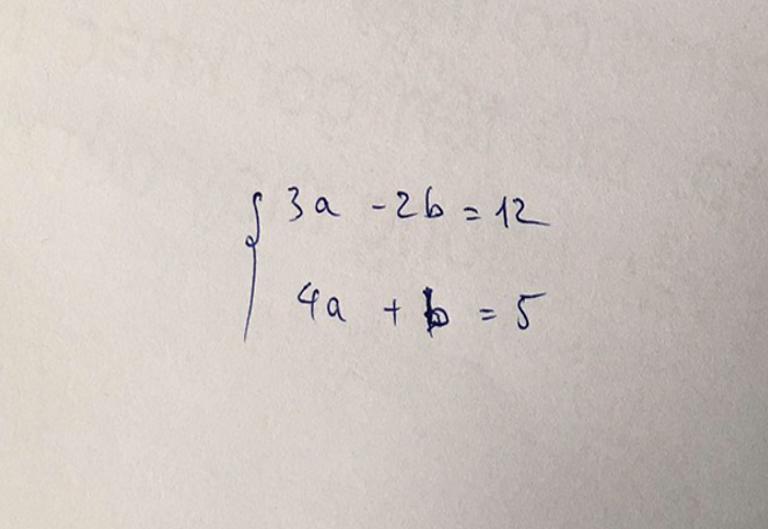 3a - 2b = 12
4a + b = 5